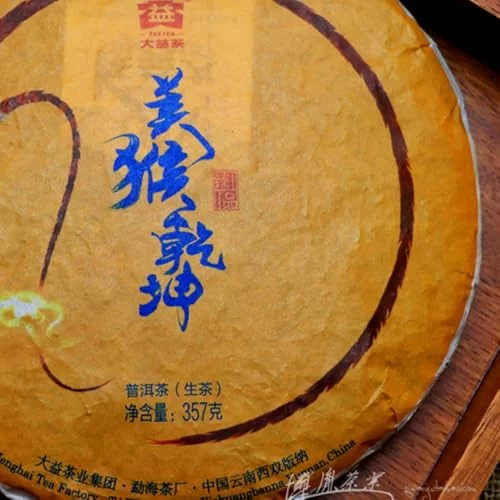 益
TAETEA
大益茶
美猴乾坤
普洱茶（生茶）
净含量：357克
大益茶业集团·勐海茶厂·中国云南西双版纳
Menghai Tea Factory
China